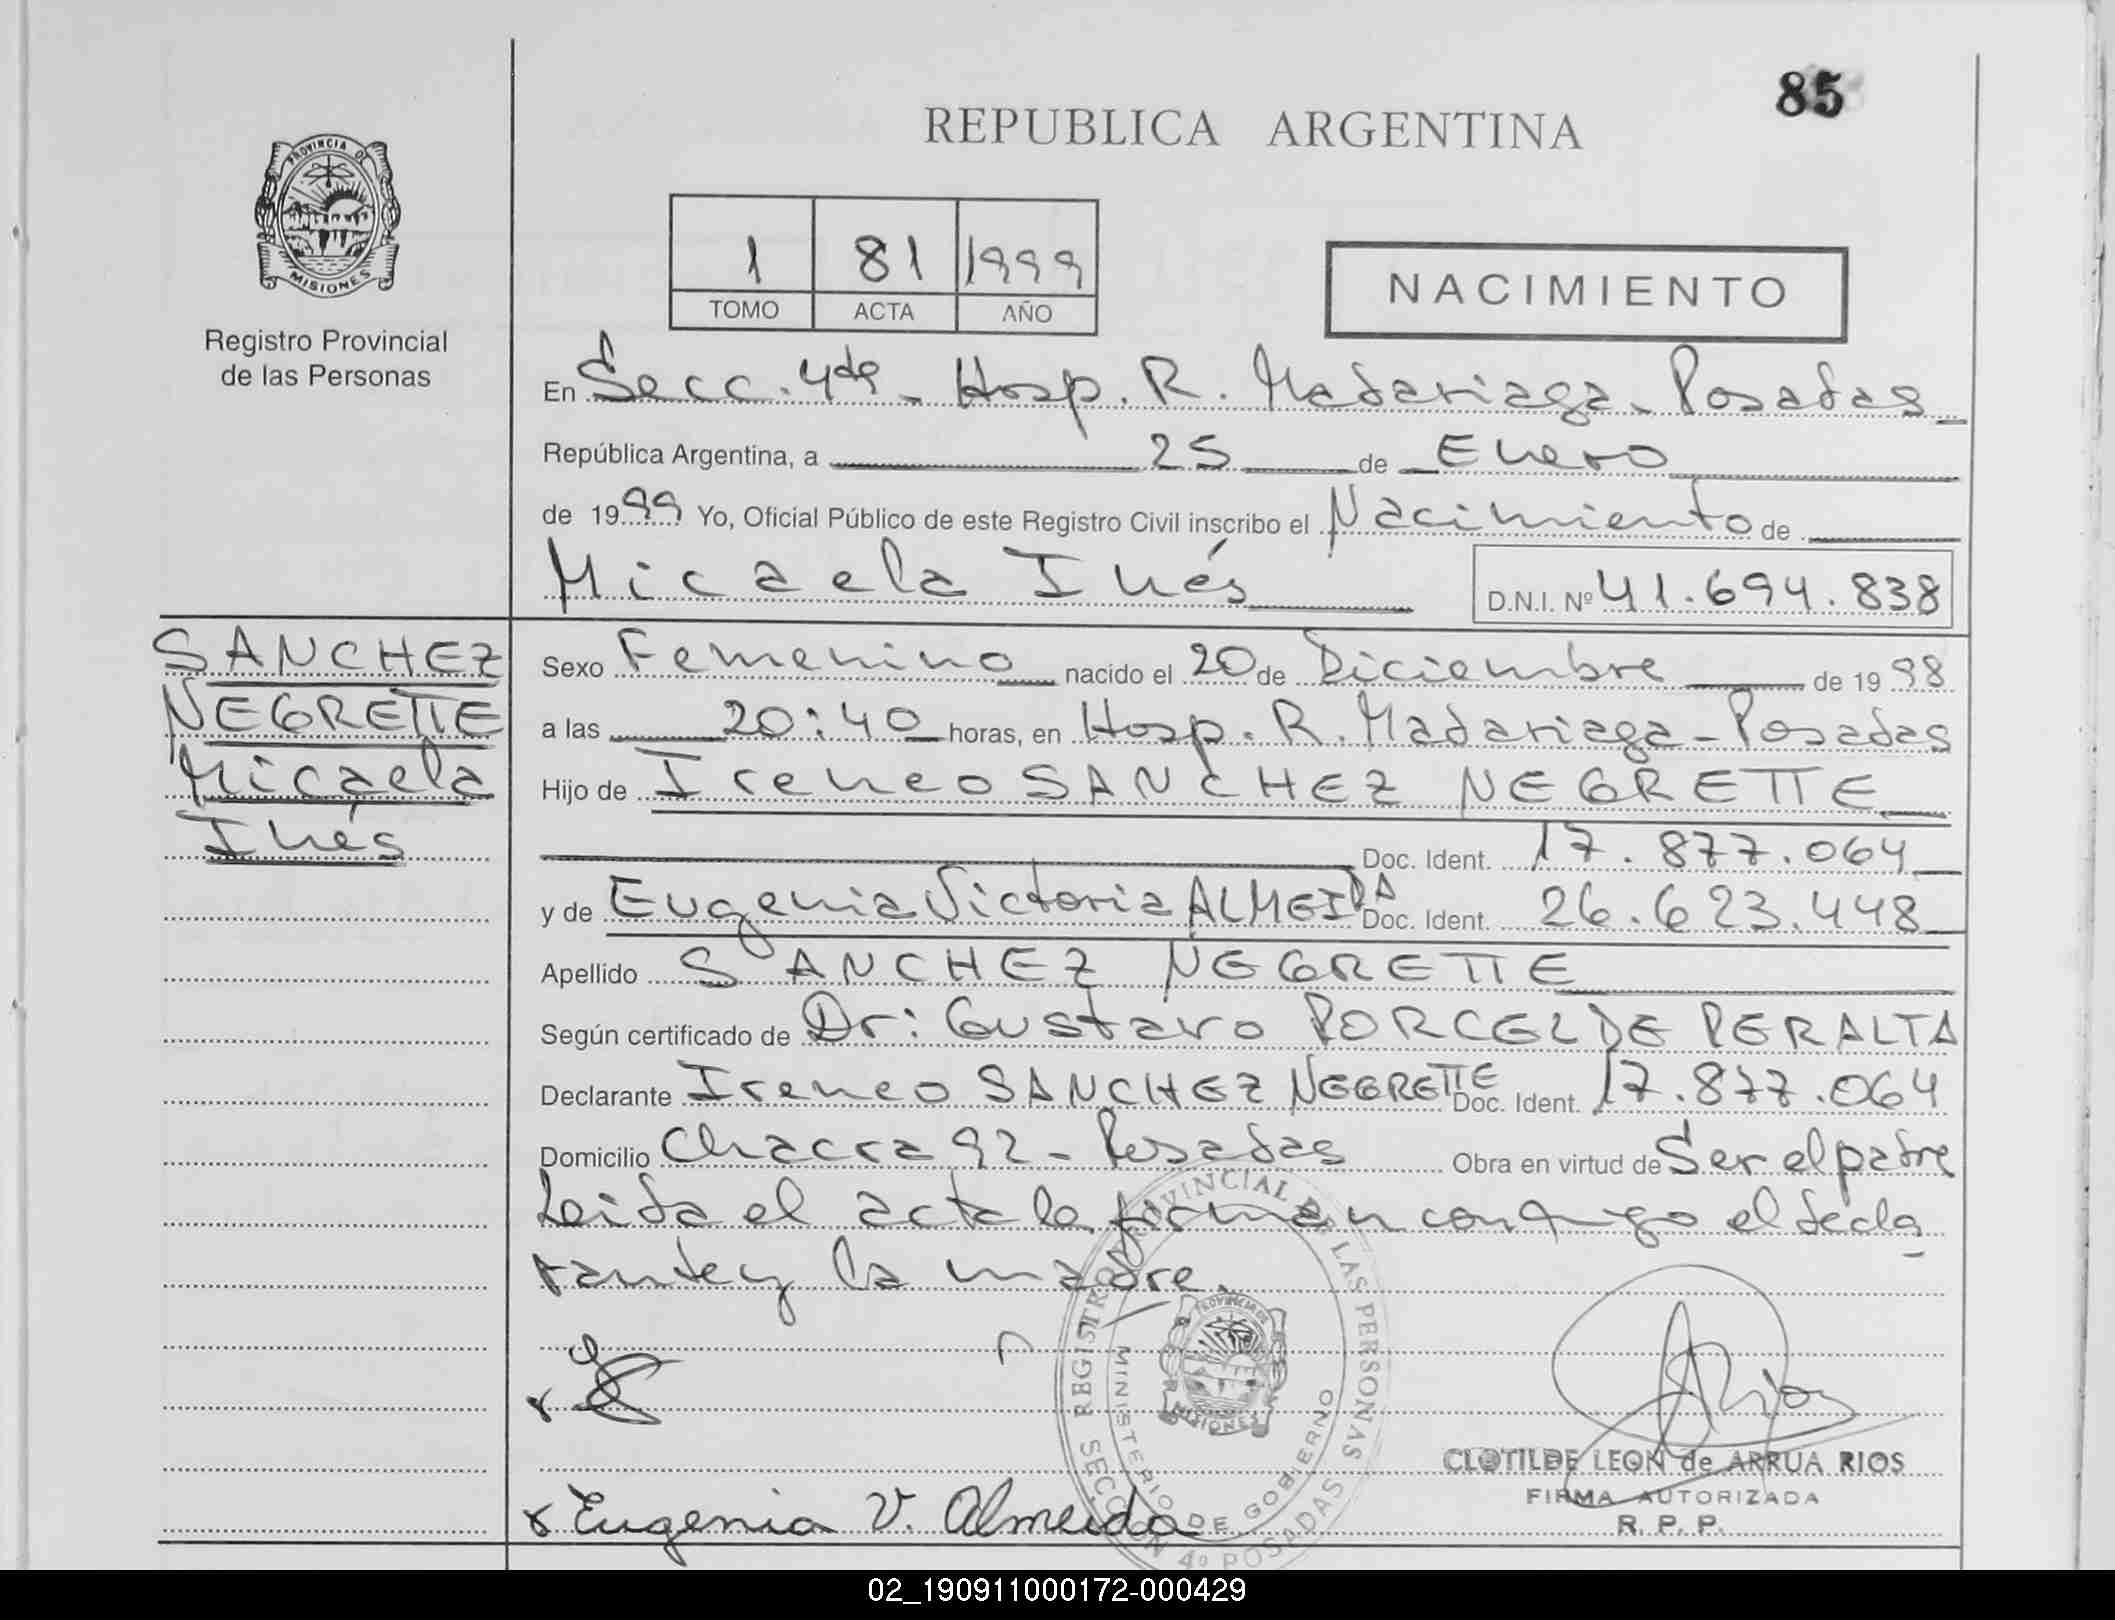 85
REPUBLICA ARGENTINA
PROVINCIA DE
MISIONES
Registro Provincial
de las Personas
1 81 1999
TOMO ACTA AÑO
NACIMIENTO
En Secc. 4ta - Hosp. R. Madariaga - Posadas
República Argentina, a 25 de Enero
de 1999 Yo, Oficial Público de este Registro Civil inscribo el Nacimiento de
Micaela Inés D.N.I. Nº 41.694.838
SANCHEZ
NEGRETTE
Micaela
Inés
Sexo Femenino nacido el 20 de Diciembre de 1998
a las 20:40 horas, en Hosp. R. Madariaga - Posadas
Hijo de Ireneo SANCHEZ NEGRETTE
Doc. Ident. 17.877.064
y de Eugenia Victoria ALMEIDA Doc. Ident. 26.623.448
Apellido SANCHEZ NEGRETTE
Según certificado de Dr: Gustavo PORCEL DE PERALTA
Declarante Ireneo SANCHEZ NEGRETTE Doc. Ident. 17.877.064
Domicilio Chacra 92 - Posadas Obra en virtud de Ser el padre
Leida el acta la firman conmigo el decla
rante y la madre.
REGISTRO PROVINCIAL DE LAS PERSONAS
MINISTERIO DE GOBIERNO
PROVINCIA DE
MISIONES
SECCION 4º POSADAS
CLOTILDE LEON de ARRUA RIOS
FIRMA AUTORIZADA
R. P. P.
x Eugenia V. Almeida
02_190911000172-000429